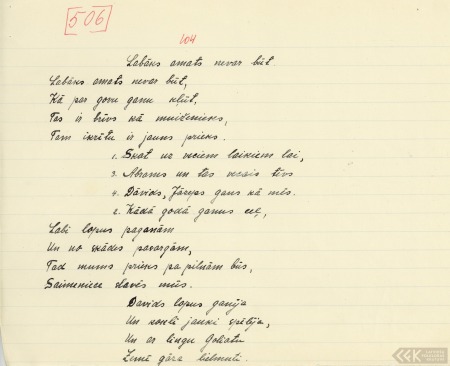 506
104
Labāks amats nevar būt
Labāks amats nevar būt,
Kā par govu ganu kļūt.
Tas ir brīvs kā muižnieks,
Tam ikrītu ir jauns prieks.
1. Skat uz veciem laikiem lai,
3. Abrams un tas vecais tēvs
4. Dāvids, Jāzeps gans kā mēs.
2. Kādā godā ganus ceļ,
Labi lopus paganām
Un no skādes pasargām,
Tad mums prieks pa pilnām būs,
Saimeniece slavēs mūs.
Davids lopus ganīja
Un koklē jauki spēlēja,
Un ar lingu Goliatu
Zemē gāza lielmuti.